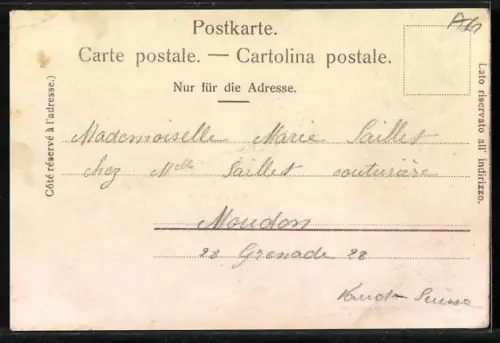 Postkarte.
Carte postale. — Cartolina postale.
Nur für die Adresse.
Côté réservé à l'adresse.)
Lato riservato all' indirizzo.
Mademoiselle Marie Saillet
chez Melle Saillet couturière
Moudon
28 Grenade 28
Vaud Suisse